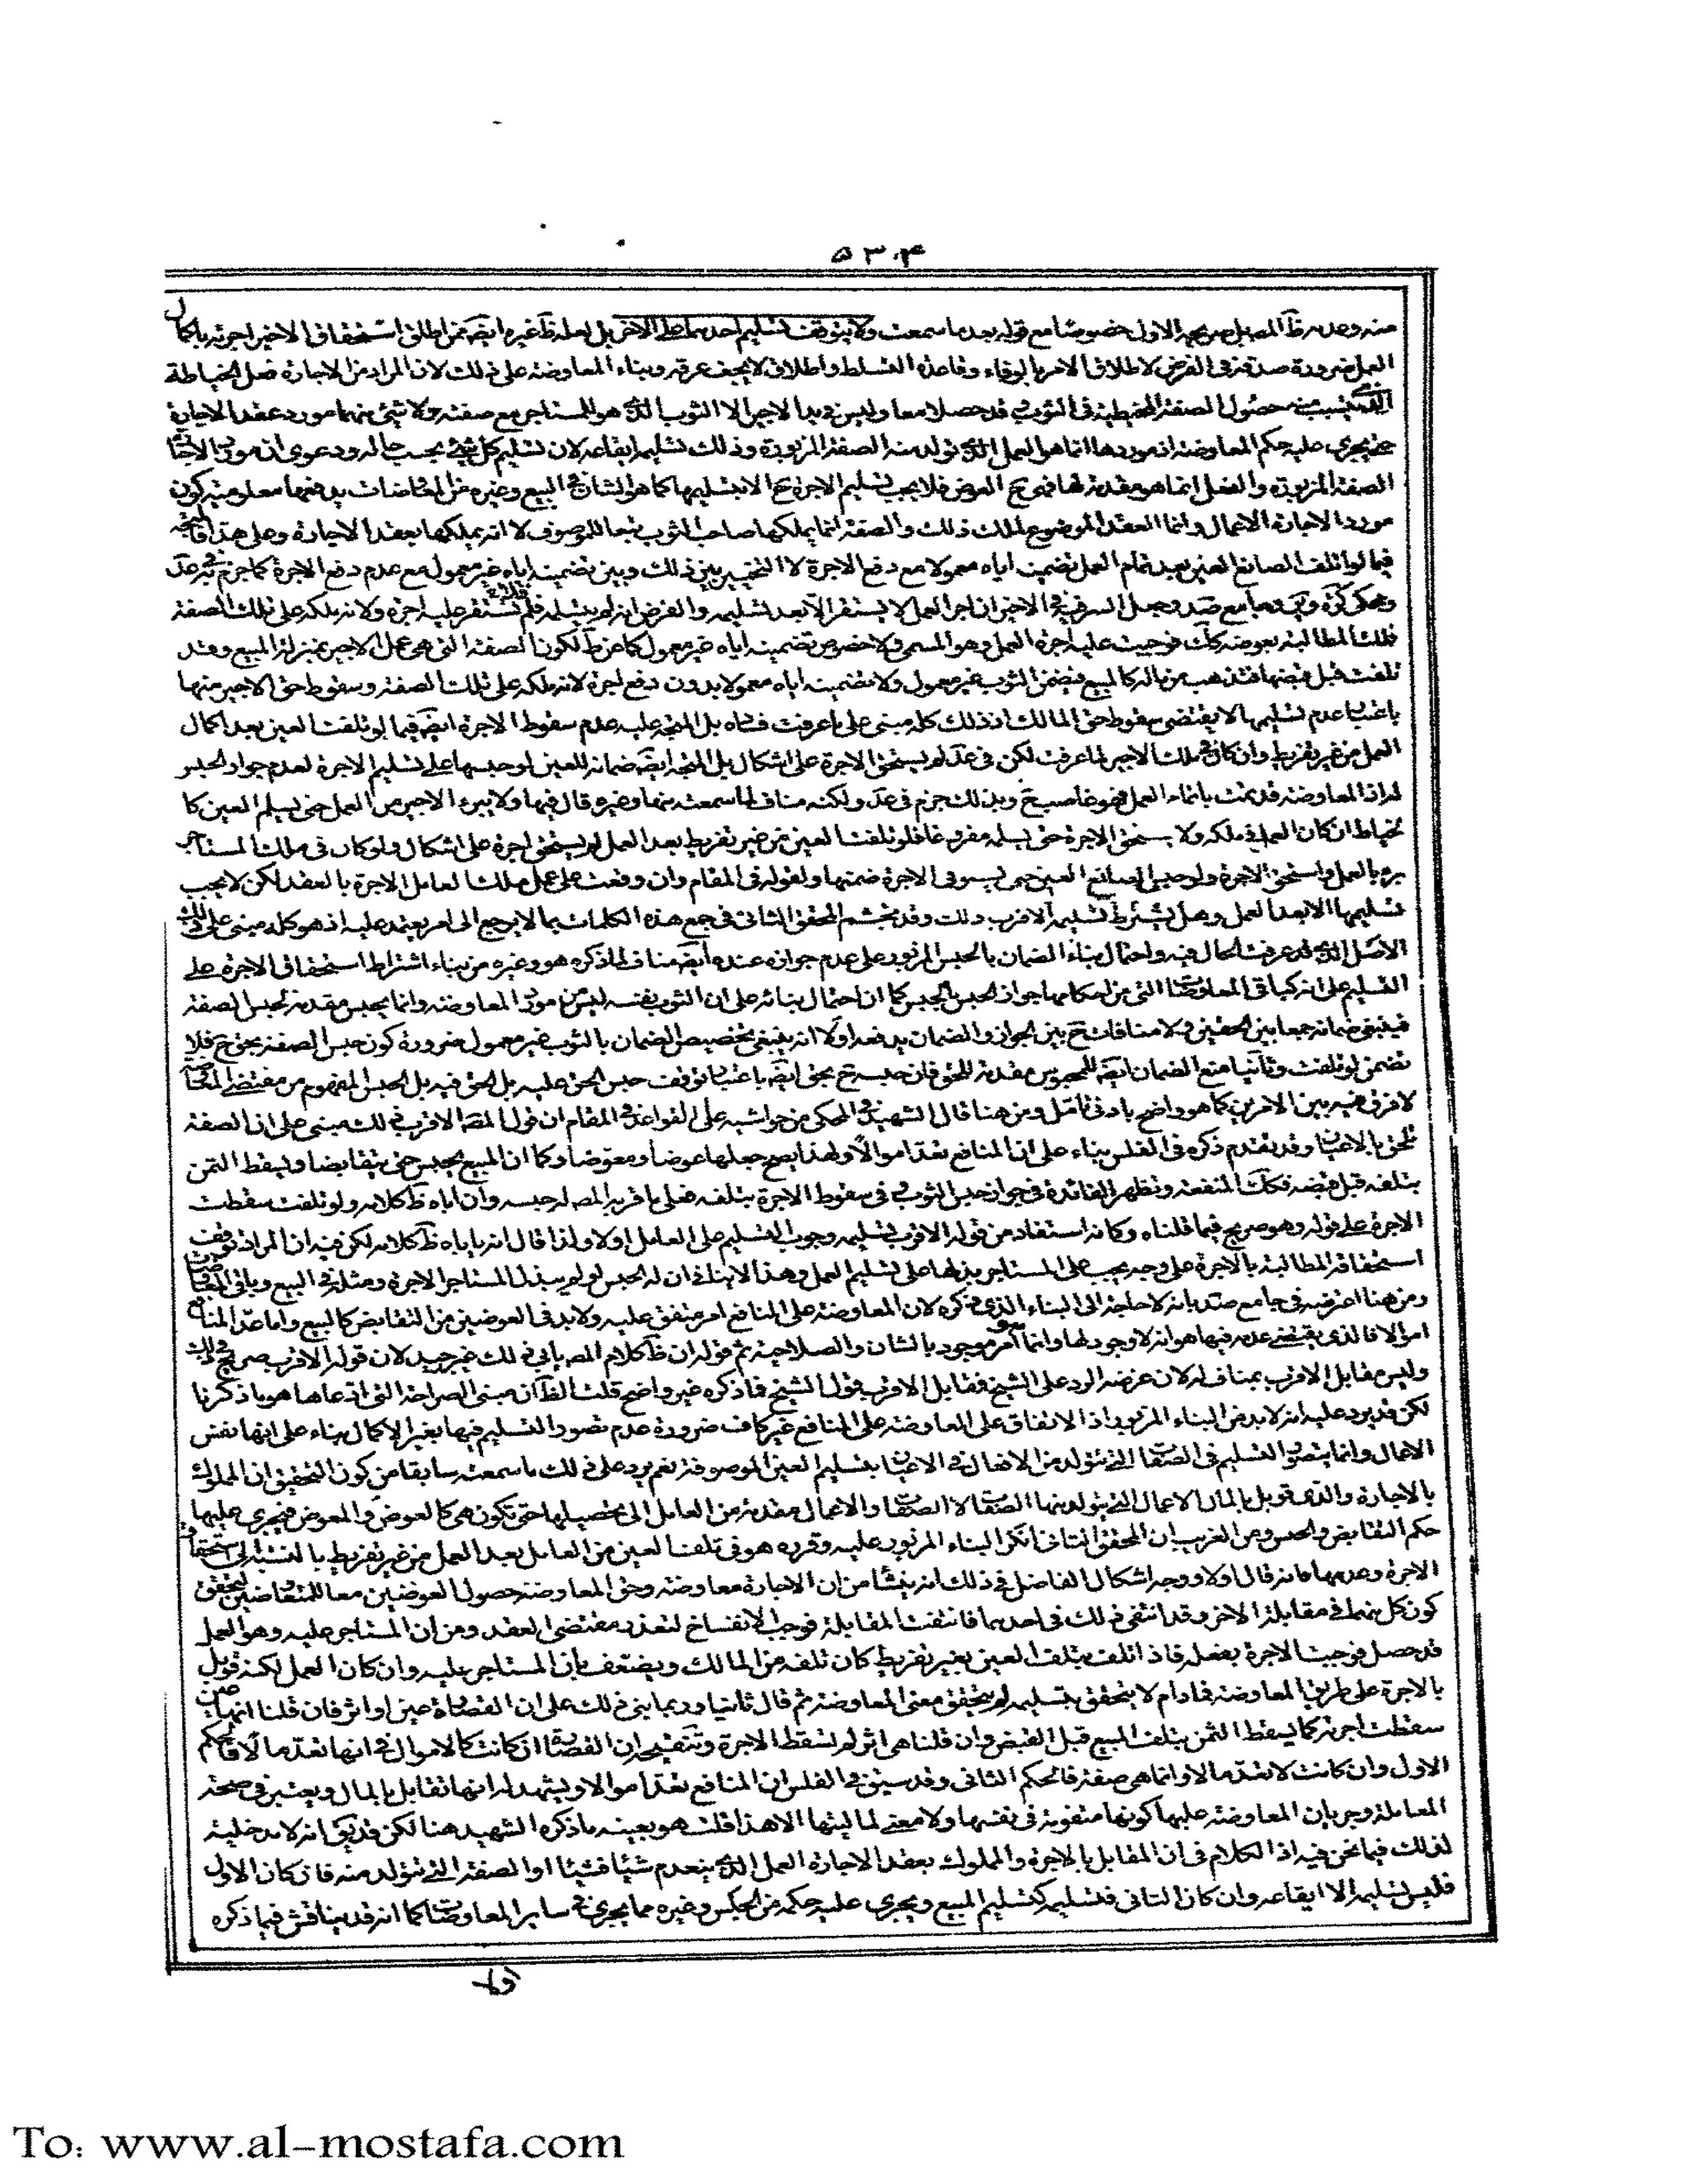 ۵۳۴
منه وعدمه ظ المص بل صريحه الاول خصوصا مع قوله بعد ما سمعت ولا يتوقف تسليم احدهما على الاخر بل لعله ظ غيره ايضه ممن اطلق استحقاق الاجير اجرته باكمال
العمل ضرورة صدقه في الفرض لاطلاق الامر بالوفاء وقاعدة التسلط واطلاق لا يجف عرقه وبناء المعاوضة على ذلك لان المراد من الاجارة فعل الخياطة
حصول الصفة المخيطية في الثوب قد حصلا معا وليس في يد الاجير الا الثوب الذي هو للمستاجر مع صفته ولا شيء منهما مورد عقد الاجارة
حتى يجري عليه حكم المعاوضة اذ موردها انما هو العمل الذي تولد منه الصفة المزبورة وذلك تسليمه ايقاعه لان تسليم كل شيء بحسب حاله ودعوى ان مورد الاجارة
الصفة المزبورة والفعل انما هو مقدمة لها فهي ح العوض فلا يجب تسليم الاجرة ح الا بتسليمها كما هو الشان في البيع وغيره من المعاوضات يدفعها معلومية كون
مورد الاجارة الاعمال وانما العقد الموضوع لملك ذلك والصفة انما يملكها صاحب الثوب تبعا للموصوف لا انه يملكها بعقد الاجارة وعلى هذا فالمتجه
فيما لو اتلف الصانع العين بعد تمام العمل تضمينه اياه معمولا مع دفع الاجرة لا التخيير بين ذلك وبين تضمينه اياه غير معمول مع عدم دفع الاجرة كما جزم به في عد
وجعل السر فيه في الاخير ان اجر العمل لا يستقر الا بعد تسليمه والفرض انه لم يسلمه فلم تستقر عليه اجرة ولانه ملكه على تلك الصفة
فملك المطالبة بعوضه كك فوجبت عليه اجرة العمل وهو المسمى ولا خصوص تضمينه اياه غير معمول كما عن ط لكون الصفة التي هي عمل الاجير بمنزلة المبيع وقد
تلفت قبل قبضها فتذهب من ماله كالمبيع فيضمن الثوب غير معمول ولا تضمينه اياه معمولا بدون دفع اجرة لانه ملكه على تلك الصفة وسقوط حق الاجير منها
باعتبار عدم تسليمها لا يقتضي سقوط حق المالك اذ ذلك كله مبني على ما عرفت فساده بل المتجه عليه عدم سقوط الاجرة ايضه فيما لو تلفت العين بعد اكمال
العمل من غير تفريط وان كان في ملك الاجير لما عرفت لكن في عد لم يستحق الاجرة على اشكال بل المتجه ايضه ضمانه للعين لو حبسها على تسليم الاجرة لعدم جواز الحبس
له اذ المعاوضة قد تمت باتمام العمل فهو غاصب ح وبذلك جزم في عد ولكنه مناف لما سمعته منها وغيره قال فيها ولا يبرء الاجير من العمل حتى يسلم العين كا
لخياط ان كان العمل في ملكه ولا يستحق الاجرة حتى يسلمه مفروغا فلو تلفت العين من غير تفريط بعد العمل لم يستحق اجرة على اشكال ولو كان في ملك المستاجر
برء بالعمل واستحق الاجرة ولو حبس الصانع العين حتى يستوفى الاجرة ضمنها ولقوله في المقام وان وقعت على عمل ملك العامل الاجرة بالعقد لكن لا يجب
تسليمها الا بعد العمل وهل يشترط تسليمه الاقرب ذلك وقد تجشم المحقق الثاني في جمع هذه الكلمات بما لا يرجع الى امر يعتمد عليه اذ هو كله مبني على ذلك
الاصل الذي قد عرفت الحال فيه واحتمال بناء الضمان بالحبس المزبور على عدم جوازه عنده ايضه مناف لما ذكره هو وغيره من بناء اشتراط استحقاق الاجرة على
التسليم على انه كباقي المعاوضات التي من احكامها جواز الحبس بالحبس كما ان احتمال بنائه على ان الثوب نفسه ليس من مورد المعاوضة وانما يحبس مقدمة لحبس الصفة
فينبغي ضمانه جمعا بين الحقين ولا منافاة ح بين الجواز والضمان يدفعه اولا انه ينبغي تخصيص الضمان بالثوب غير معمول ضرورة كون حبس الصفة بحق ح فلا
تضمن لو تلفت وثانيا منع الضمان ايضه للمحبوس مقدمة للحق فان حبسه ح بحق ايضه باعتبار توقف حبس الحق عليه بل الحق فيه بل الحبس المفهوم من مقتضى
لا فرق فيه بين الامرين كما هو واضح بادنى تامل ومن هنا قال الشهيد في المحكي من حواشيه على القواعد في المقام ان قول المصا الاقرب ذلك مبني على ان الصفة
تلحق بالاعيان وقد تقدم ذكره في الفلس بناء على ان المنافع تعد اموالا ولهذا يصح جعلها عوضا ومعوضا وكما ان المبيع يحبس حتى يتقابضا ويسقط الثمن
بتلفه قبل قبضه فكك المنفعة وتظهر الفائدة في جواز حبس الثوب في سقوط الاجرة بتلفه فعلى ما قربه المص له حبسه وان اباه ظ كلامه ولو تلفت سقطت
الاجرة على قوله وهو صريح فيما قلناه وكانه استفاد من قوله الاقرب تسليمه وجوب التسليم على العامل اولا ولذا قال انه ياباه ظ كلامه لكن فيه ان المراد توقف
استحقاقه المطالبة بالاجرة على وجه يجب على المستاجر بذلها على تسليم العمل وهذا لا ينافي ان له الحبس لو لم يبذل المستاجر الاجرة ومثله في البيع وباقي المعاوضات
ومن هنا اعترضه في جامع صد بانه لا حاجة الى البناء الذي ذكره لان المعاوضة على المنافع امر متفق عليه ولا بد في العوضين من التقابض كالبيع واما عد المنافع
اموالا فالذي يقتضي عدمه فيها هو انه لا وجود لها وانما هو امر موجود بالشان والصلاحية ثم قوله ان ظ كلام المص يابى ذلك غير جيد لان قوله الاقرب صريح في ذلك
وليس مقابل الاقرب بمناف له لان غرضه الرد على الشيخ فمقابل الاقرب قول الشيخ فما ذكره غير واضح قلت الظ ان مبنى الصراحة التي ادعاها هو ما ذكرنا
لكن قد يرد عليه انه لا بد من البناء المزبور اذ الاتفاق على المعاوضة على المنافع غير كاف ضرورة عدم تصور التسليم فيها بغير الاكمال بناء على انها نفس
الاعمال وانما يتصور التسليم في الصفات التي تتولد من الافعال في الاعيان بتسليم العين الموصوفة نعم يرد على ذلك ما سمعته سابقا من كون التحقيق ان المملوك
بالاجارة والذي قوبل بالمال الاعمال التي يتولد منها الصفات لا الصفات والاعمال مقدمة من العامل الى تحصيلها حتى تكون هي كالعوض والمعوض فيجري عليها
حكم التقابض والحبس ومن الغريب ان المحقق الثاني انكر البناء المزبور عليه وقرره هو في تلف العين من العامل بعد العمل من غير تفريط بالنسبة الى استحقاق
الاجرة وعدمها فانه قال اولا ووجه اشكال الفاضل في ذلك انه ينشأ من ان الاجارة معاوضة وحق المعاوضة حصول العوضين معا للمتعاوضين ليتحقق
كون كل منهما في مقابلة الاخر وقد انتفى ذلك في احدهما فانتفت المقابلة فوجب الانفساخ لتعذر مقتضى العقد ومن ان المستاجر عليه وهو العمل
قد حصل فوجبت الاجرة بفعله فاذا تلف بتلف العين بغير تفريط كان تلفه من المالك ويضعف بان المستاجر عليه وان كان العمل لكنه قوبل
بالاجرة على طريق المعاوضة فما دام لا يتحقق بتسليمه لم يتحقق معنى المعاوضة ثم قال ثانيا وربما بنى ذلك على ان القصارة عين او اثر فان قلنا انها عين
سقطت اجرته كما يسقط الثمن بتلف المبيع قبل القبض وان قلنا هي اثر لم تسقط الاجرة وتنقيحه ان القصارة ان كانت كالاموال في انها تعد مالا فالحكم
الاول وان كانت لا تعد مالا وانما هي صفة فالحكم الثاني وقد سبق في الفلس ان المنافع تعد اموالا ويشهد له انها تقابل بالمال ويعتبر في صحة
المعاملة وجريان المعاوضة عليها كونها متقومة في نفسها ولا معنى لماليتها الا هذا قلت هو بعينه ما ذكره الشهيد هنا لكن قد يق انه لا مدخلية
لذلك فيما نحن فيه اذ الكلام في ان المقابل بالاجرة والمملوك بعقد الاجارة العمل الذي ينعدم شيئا فشيئا او الصفة التي تتولد منه فان كان الاول
فليس تسليمه الا ايقاعه وان كان الثاني فتسليمه كتسليم المبيع ويجري عليه حكمه من الحبس وغيره مما يجري في ساير المعاوضات كما انه قد يناقش فيما ذكره
اولا
To: www.al-mostafa.com